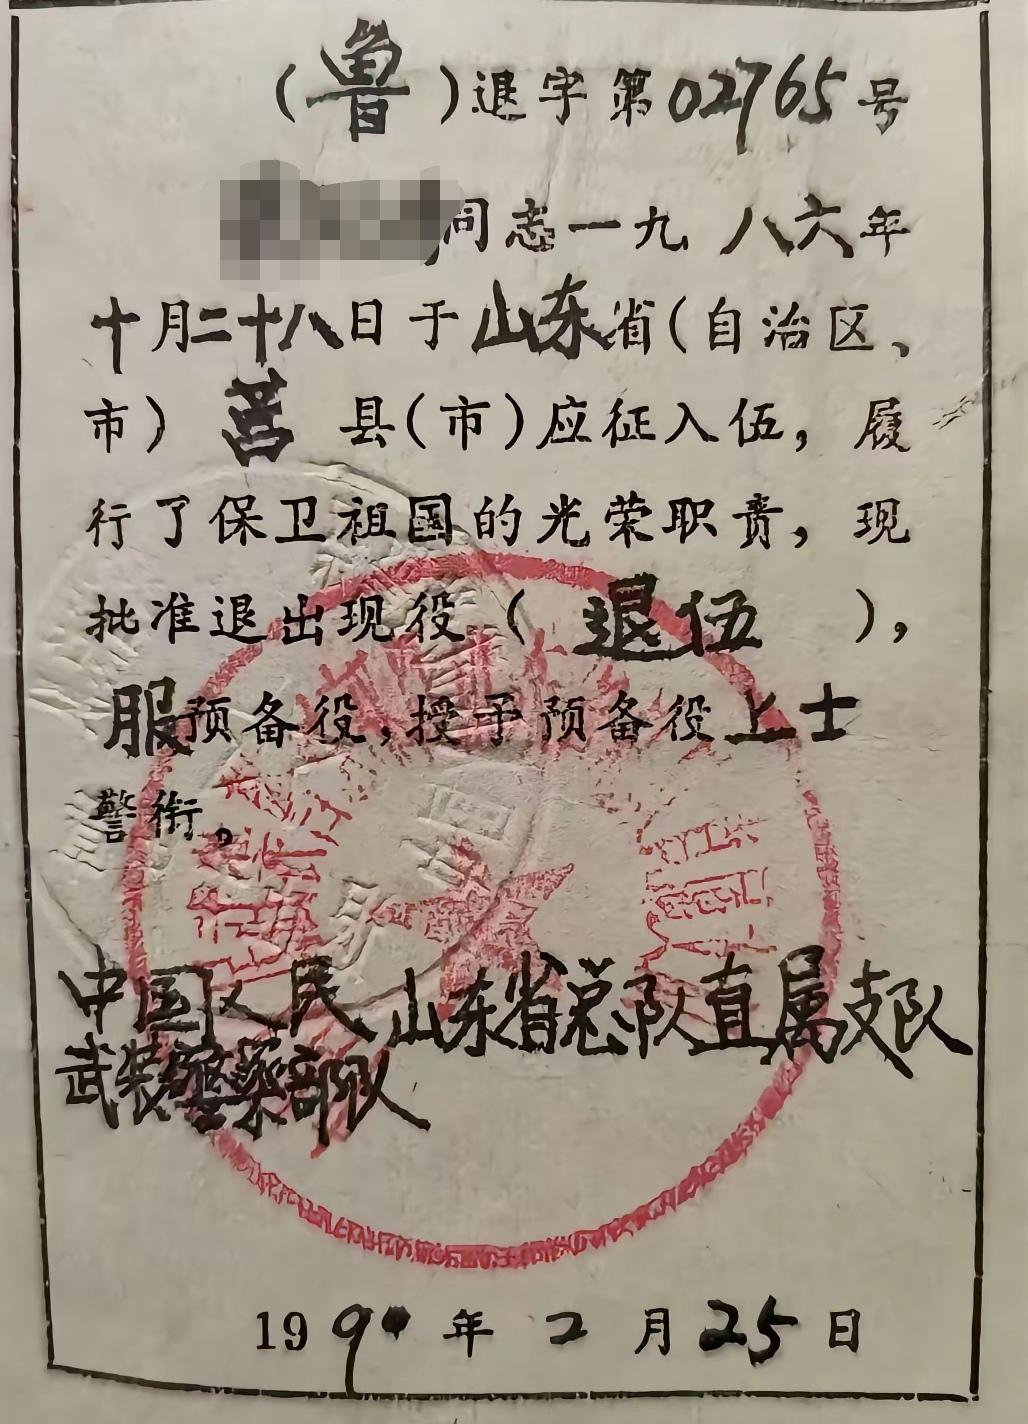 (鲁)退字第02765号
同志一九八六年
十月二十八日于山东省(自治区、
市)莒 县(市)应征入伍，履
行了保卫祖国的光荣职责，现
批准退出现役（退伍），
服预备役，授予预备役上士
警衔。
中国人民山东省总队直属支队
武装警察部队
1990年2月25日